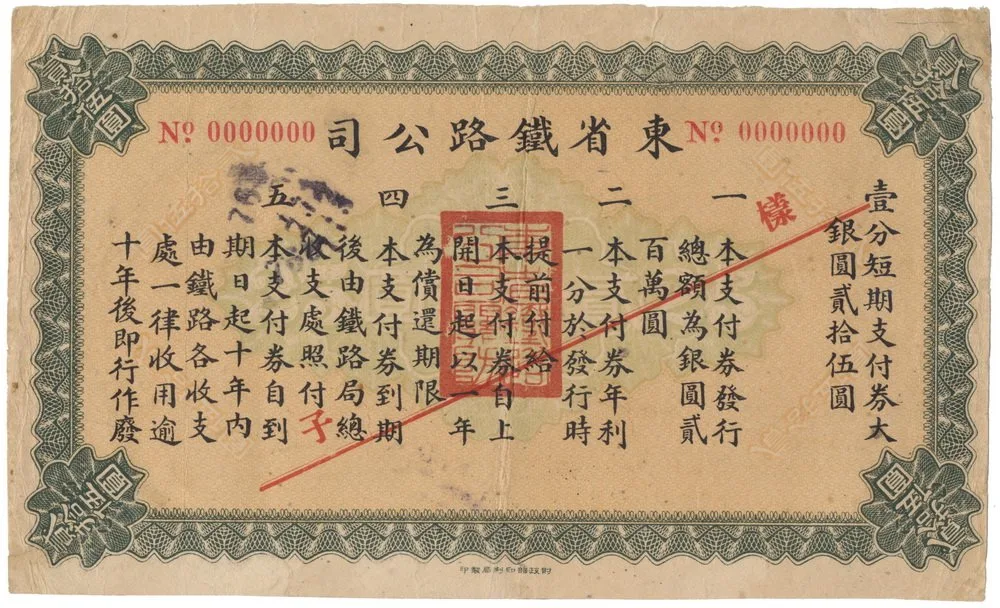 東省鐵路公司
Nº 0000000
Nº 0000000
壹分短期支付券大
銀圓貳拾伍圓
一 本支付券發行
總額為銀圓貳
百萬圓
二 本支付券年利
一分於發行時
提前付給
三 本支付券自上
開日起以一年
為償還期限
四 本支付券到期
後由鐵路局總
收支處照付
五 本支付券自到
期日起十年內
由鐵路各收支
處一律收用逾
十年後即行作廢
樣子
貳拾伍圓
貳拾伍圓
貳拾伍圓
貳拾伍圓